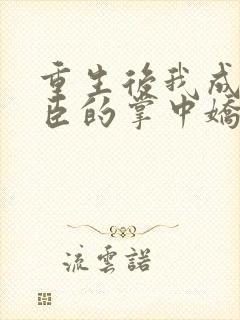 重生後我成
臣的掌中嬌
流雲諾